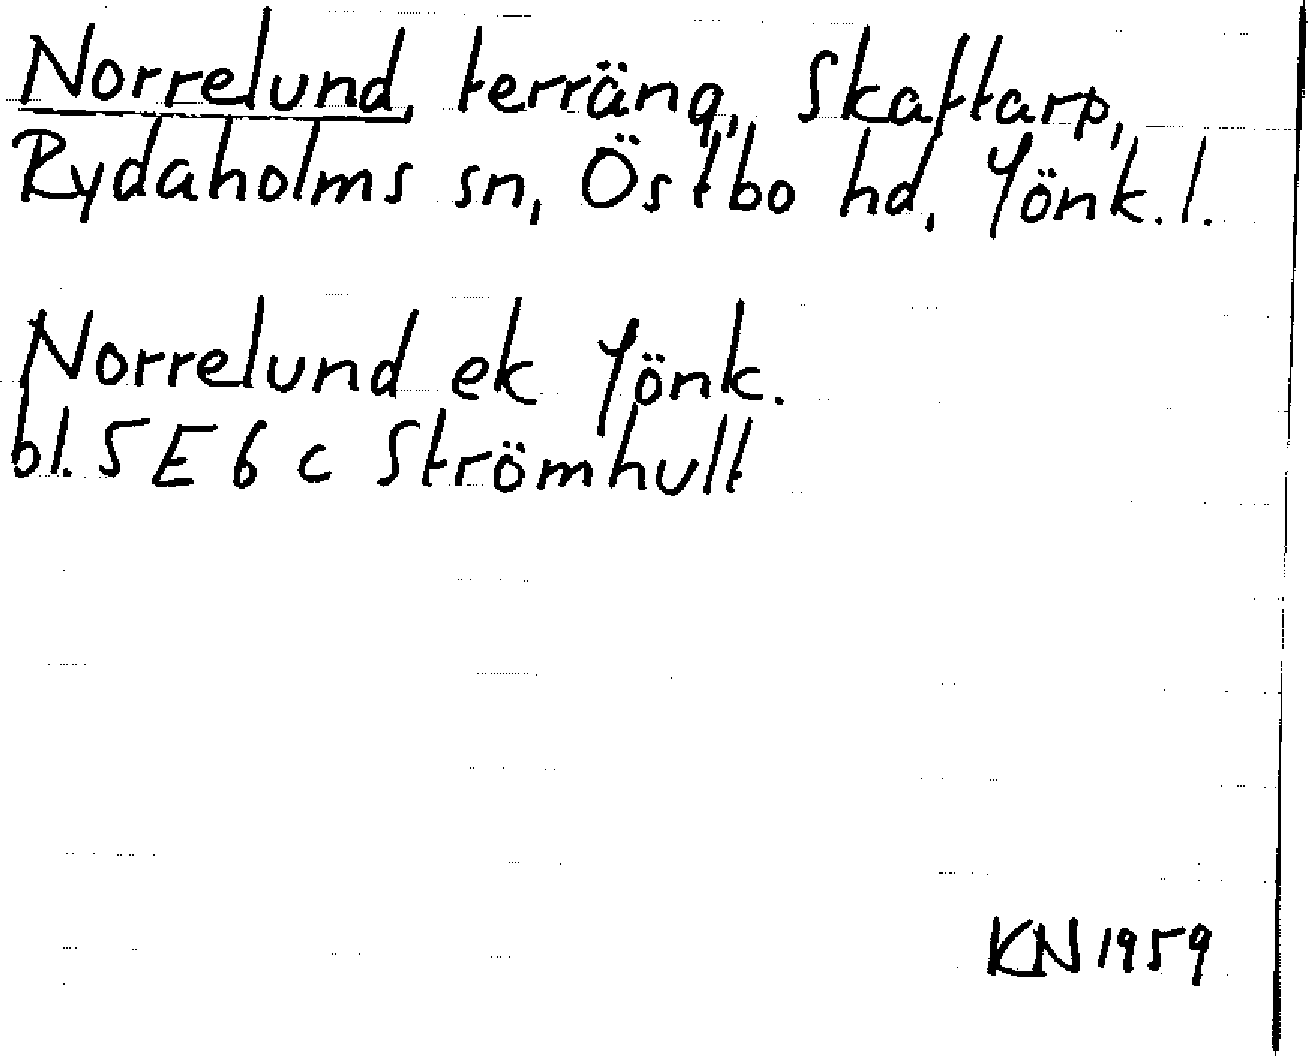 Norrelund, terräng, Skaftarp,
Rydaholms sn, Östbo hd, Jönk. l.
Norrelund ek Jönk.
bl. 5 E 6 c Strömhult
KN 1959